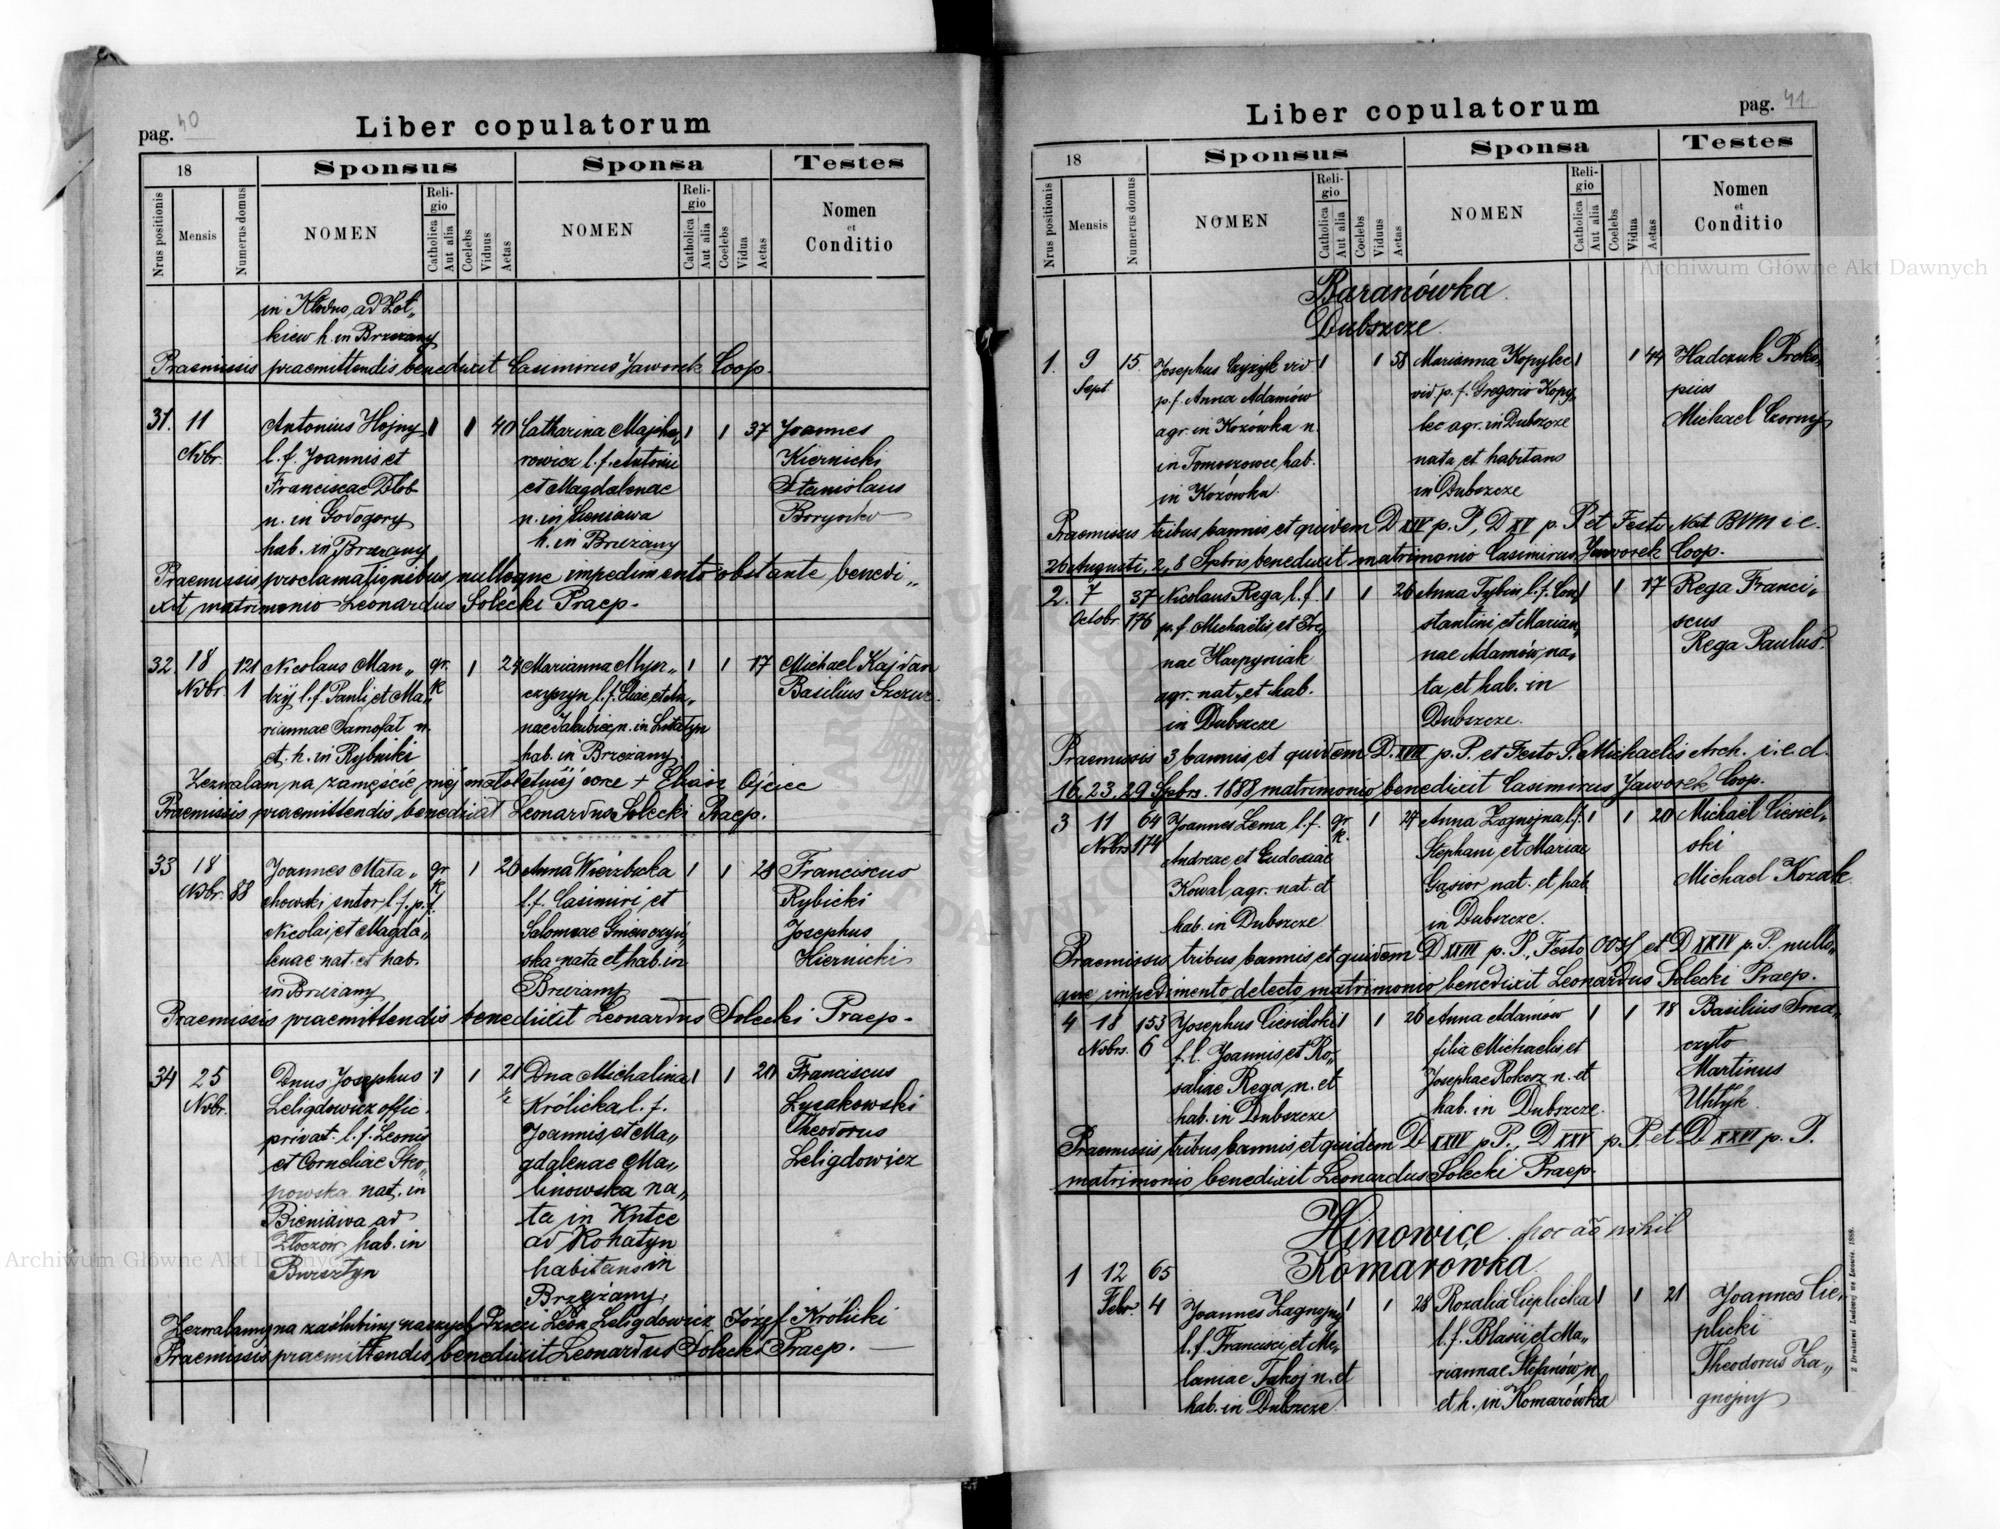 pag. 40
Liber copulatorum
18
Sponsus
Sponsa
Testes
Nrus positionis
Mensis
Numerus domus
NOMEN
Religio
Catholica
Aut alia
Coelebs
Viduus
Aetas
NOMEN
Religio
Catholica
Aut alia
Coelebs
Vidua
Aetas
Nomen
et
Conditio
in Kłodno, ad Żoł„
kiew h. in Brzeżany
Praemissis praemittendis benedixit Casimirus Jaworek Coop.
31. 11 Antonius Hojny 1 1 40 Catharina Majhe„ 1 1 37 Joannes
Nvbr. l. f. Joannis et rowicz l. f. Antonii Kiernicki
Franciscae et Magdalenae Stanislaus
n. in Gołogory n. in Sieniawa
hab. in Brzeżany h. in Brzeżany
Praemissis proclamationibus, nulloque impedimento obstante, benedi„
xit matrimonio Leonardus Solecki Praep.
32. 18 121 Nicolaus Man„ gr. 1 24 Marianna 1 1 17 Michael Kajdan
Nvbr. 1 dzij l. f. Pauli et Ma„ k czyszyn l. f. Eliae, et An„ Basilius
riannae Samofał n. nae Jakubiec, n. in Litatyn
et. h. in Rybniki hab. in Brzeżany
Zezwalam na zamęście mej małoletniéj córce + Eliasz Ojciec
Praemissis praemittendis benedixit Leonardus Solecki Praep.
33 18 Joannes Mata„ gr 1 26 Anna Wierzbicka 1 1 28 Franciscus
Nvbr. 88 chowski sutor l. f. p. f. k l. f. Casimiri et Rybicki
Nicolai, et Magda„ Salomeae Josephus
lenae nat. et hab. ska nata et hab. in Kiernicki
in Brzeżany Brzeżany
Praemissis praemittendis benedixit Leonardus Solecki Praep.
34 25 Dnus Josephus 1 1 21 Dna Michalina 1 1 20 Franciscus
Nvbr. Leligdowicz offic. ½ Królicka l. f. Łysakowski
privat. l. f. Leonis Joannis, et Ma„ Theodorus
et Corneliae Sko„ gdalenae Ma„ Leligdowicz
powska nat. in linowska na„
Bieniawa ad ta in Kutce
Złoczów, hab. in ad Rohatyn
Bursztyn habitans in
Brzeżany
Zezwalamy na zaślubiny naszych Dzieci Leon Leligdowicz Józef Królicki
Praemissis praemittendis, benedixit Leonardus Solecki Praep. —
pag. 41
Liber copulatorum
18
Sponsus
Sponsa
Testes
Nrus positionis
Mensis
Numerus domus
NOMEN
Religio
Catholica
Aut alia
Coelebs
Viduus
Aetas
NOMEN
Religio
Catholica
Aut alia
Coelebs
Vidua
Aetas
Nomen
et
Conditio
Baranówka
Dubszcze
1. 9 15 Josephus Czyżyk vid 1 1 58 Marianna Kopylec 1 1 44 Hadczuk Proko„
Sept p. f. Anna Adamów vid p. f. Gregorio Kopy„ pius
agr. in Kozówka n. lec agr. in Dubszcze Michael Czorny
in hab. nata, et habitans
in Kozówka in Dubszcze
Praemissis tribus bannis, et quidem D XIV p. P, D XV p. P et Festo Nat BVM i e.
26 Augusti, 2, 8 Spbris benedixit matrimonio Casimirus Jaworek Coop.
2. 7 37 Nicolaus Rega, l. f. 1 1 26 Anna l. f. Con„ 1 1 17 Rega Franci„
Octobr. 176 p. f. Michaelis, et Ire„ stantini, et Marian„ scus
nae Karpyniak nae Adamów, na„ Rega Paulus.
agr. nat, et hab. ta, et hab. in
in Dubszcze Dubszcze.
Praemissis 3 bannis, et quidem D. XVII, p. P. et Festo S. Michaelis Arch. i. e. d.
16, 23, 29 Spbrs. 1888 matrimonio benedixit Casimirus Jaworek Coop.
3 11 64 Joannes Zema l. f. gr. 1 27 Anna Zagnojna l. f. 1 1 20 Michael Ciesiel„
Nvbrs 174 Andreae, et Eudoxiae k. Stephani, et Mariae ski
Kowal, agr. nat. et Gąsior nat. et, hab. Michael Kozak
hab. in Dubszcze in Dubszcze.
Praemissis, tribus, bannis, et quidem D XXIII p. P., Festo OOSS, et D XXIV p. P. nullo„
que impedimento delecto, matrimonio benedixit Leonardus Solecki Praep.
4 18 153 Josephus Ciesielski 1 1 26 Anna Adamów 1 1 18 Basilius Sma„
Nvbrs. 6 f. l. Joannis, et Ro„ filia Michaelis, et czyło
saliae Rega, n. et Josephae Rokosz n. et Martinus
hab. in Dubszcze hab. in Dubszcze.
Praemissis, tribus, bannis, et quidem D XXIV p. P., D XXV p. P et D XXVI p. P.
matrimonio benedixit Leonardus Solecki Praep.
Hinowice nihil
Komarówka
1 12 65
Febr 4 Joannes Zagnojny 1 1 28 Rozalia Cieplicka 1 1 21 Joannes Cie„
l. f. Francisci, et Me„ l. f. Blasii, et Ma„ plicki
laniae n. et riannae Stefanów, n. Theodorus Za„
hab. in Dubszcze et h. in Komarówka gnojny
Z Drukarni Ludowej we Lwowie. 1888.
Archiwum Główne Akt Dawnych
Archiwum Główne Akt Dawnych